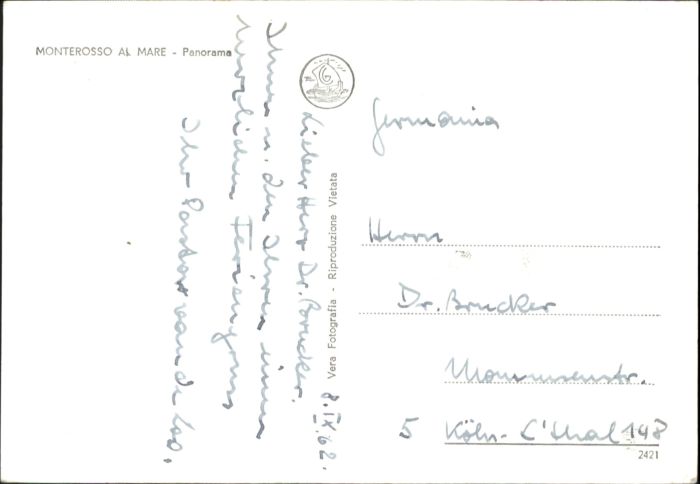 MONTEROSSO AL MARE - Panorama
Lieber Herr Dr. Brucker. 8.IX.62.
Ihnen u. den Ihren einen
herzlichen Feriengruss
Ihr Pastor van de Loo.
Vera Fotografia - Riproduzione Vietata
Germania
Herrn
Dr. Brucker
Mommsenstr.
5 Köln-L'thal 148
2421